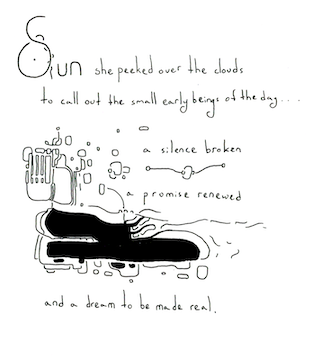 Sun she peeked over the clouds
to call out the small early beings of the day....
a silence broken
a promise renewed
and a dream to be made real.